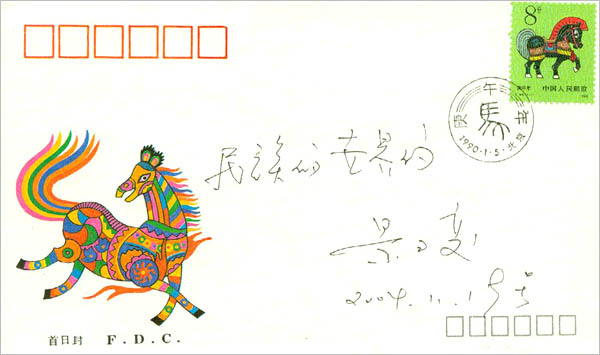 8分
庚午年 中国人民邮政
庚午年
馬
1990·1·5·北京
民族的世界的
2004.11.1
首日封 F.D.C.